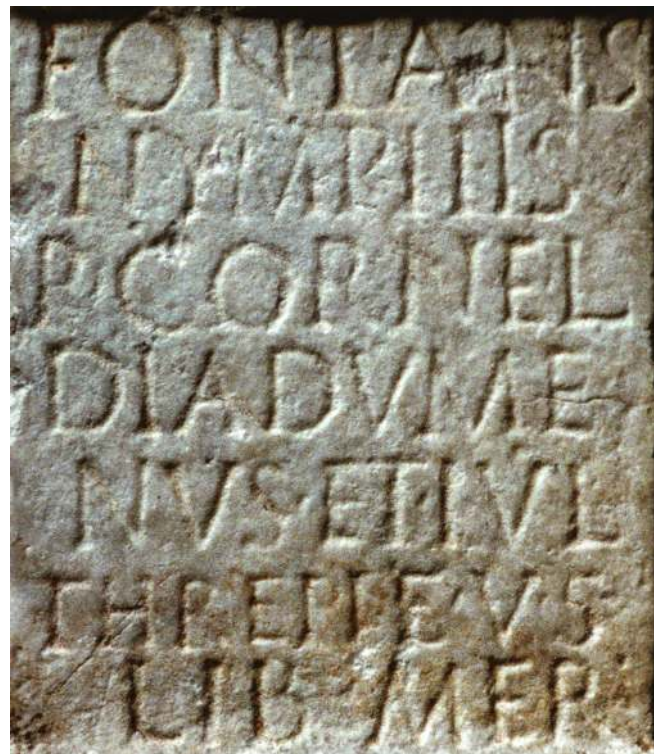 FONTANIS
P CORNEL
DIADVME
NVS ET IVL
THREPTEVS
LIB MER